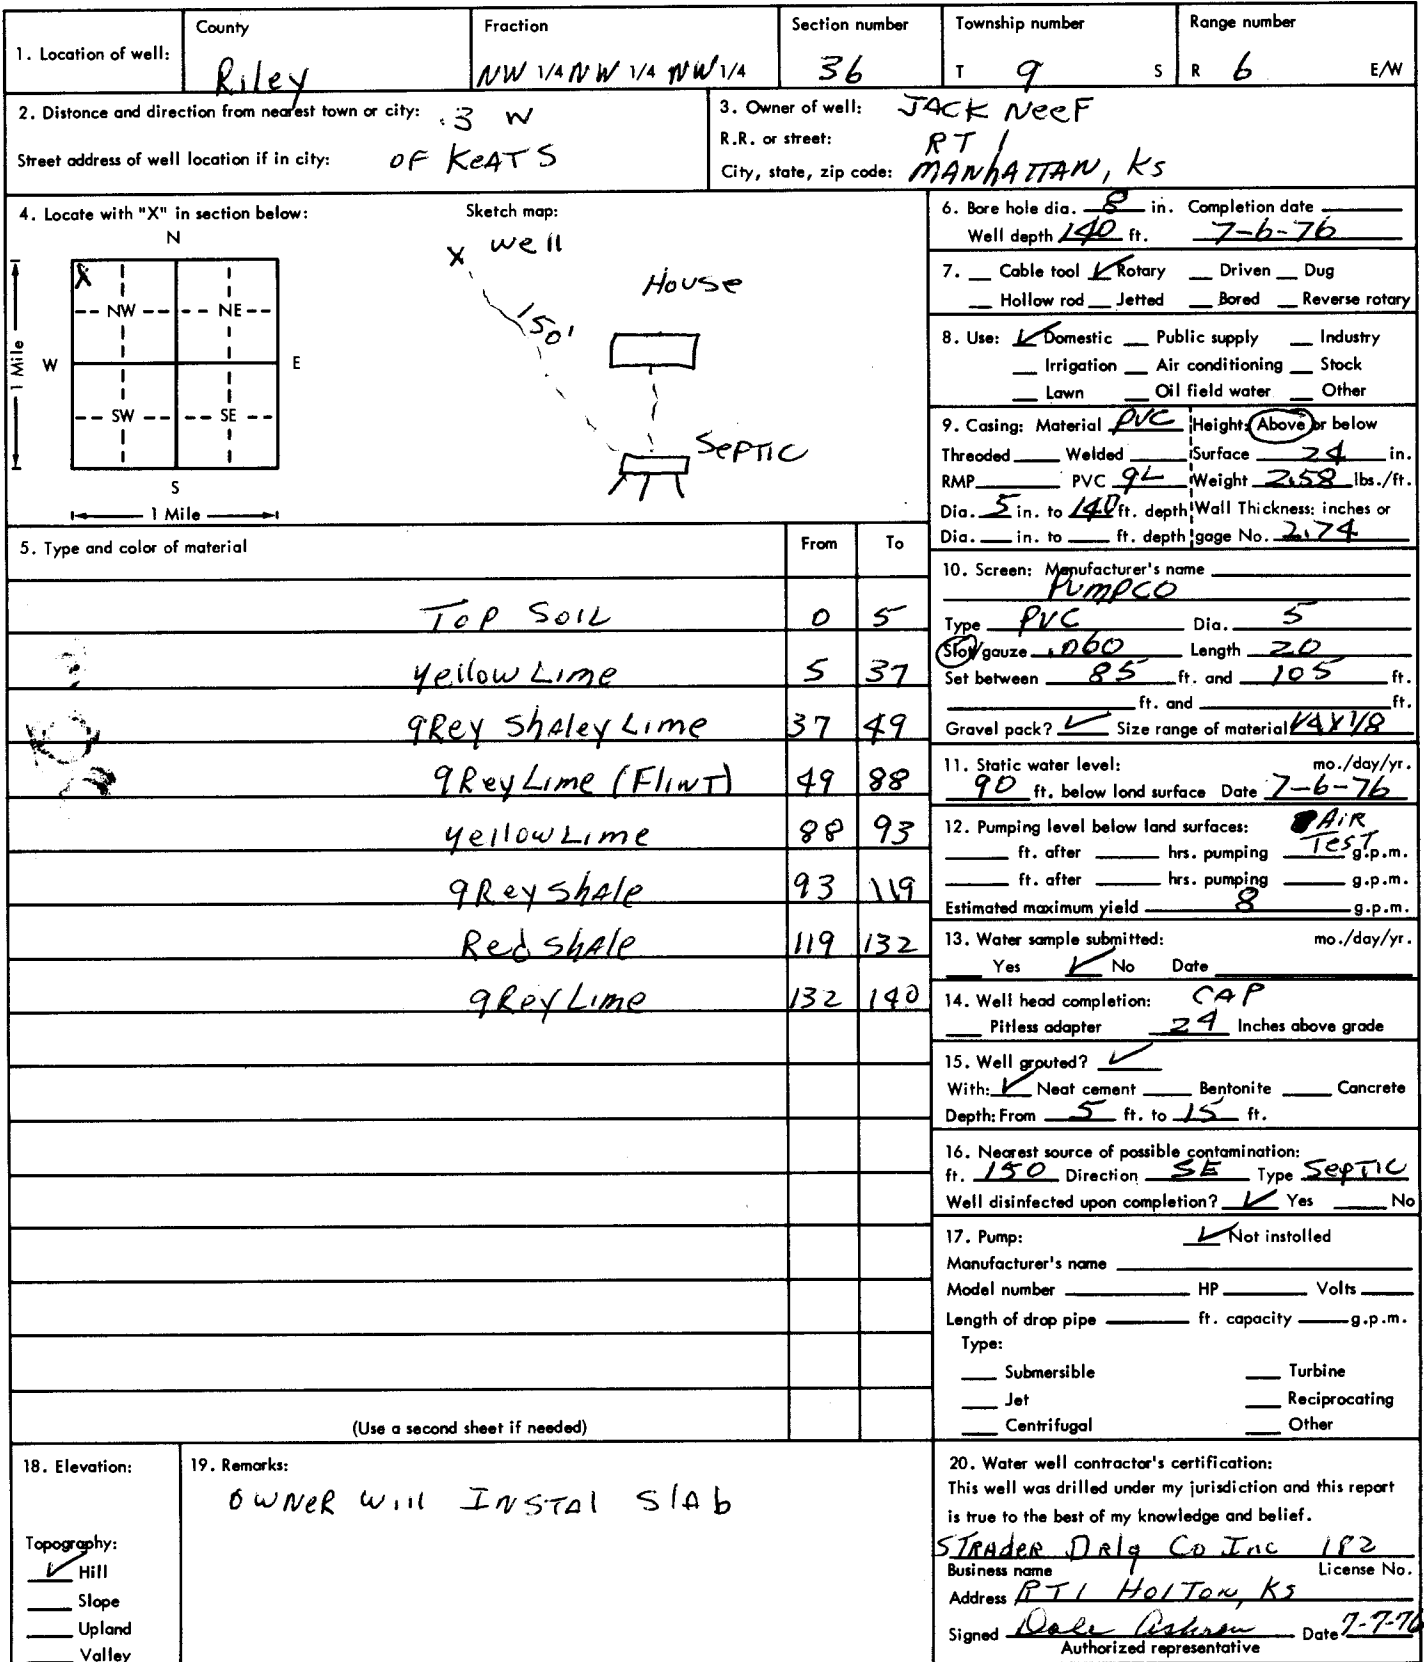 1. Location of well:
County
Riley
Fraction
NW 1/4 NW 1/4 NW 1/4
Section number
36
Township number
T 9 S
Range number
R 6 E/W
2. Distance and direction from nearest town or city: .3 W
Street address of well location if in city: OF KeATS
3. Owner of well: JACK NeeF
R.R. or street: RT 1
City, state, zip code: MANhATTAN, Ks
4. Locate with "X" in section below:
N
X
NW NE
W E
SW SE
S
1 Mile
1 Mile
Sketch map:
X well
House
150'
SePTIC
5. Type and color of material From To
Top SOIL 0 5
Yellow Lime 5 37
gRey ShAley Lime 37 49
gRey Lime (FlinT) 49 88
Yellow Lime 88 93
gRey ShAle 93 119
Red ShAle 119 132
gRey Lime 132 140
(Use a second sheet if needed)
6. Bore hole dia. 8 in. Completion date
Well depth 140 ft. 7-6-76
7. Cable tool ✓ Rotary Driven Dug
Hollow rod Jetted Bored Reverse rotary
8. Use: ✓ Domestic Public supply Industry
Irrigation Air conditioning Stock
Lawn Oil field water Other
9. Casing: Material PVC Height: Above or below
Threaded Welded Surface 24 in.
RMP PVC gL Weight 2.58 lbs./ft.
Dia. 5 in. to 140 ft. depth Wall Thickness: inches or
Dia. in. to ft. depth gage No. 2.74
10. Screen: Manufacturer's name
PumpCO
Type PVC Dia. 5
Slot/gauze .060 Length 20
Set between 85 ft. and 105 ft.
ft. and ft.
Gravel pack? ✓ Size range of material 1/4 X 1/8
11. Static water level: mo./day/yr.
90 ft. below land surface Date 7-6-76
12. Pumping level below land surfaces: AiR
ft. after hrs. pumping TesT g.p.m.
ft. after hrs. pumping g.p.m.
Estimated maximum yield 8 g.p.m.
13. Water sample submitted: mo./day/yr.
Yes ✓ No Date
14. Well head completion: CAP
Pitless adapter 24 Inches above grade
15. Well grouted? ✓
With: ✓ Neat cement Bentonite Concrete
Depth: From 5 ft. to 15 ft.
16. Nearest source of possible contamination:
ft. 150 Direction SE Type SepTIC
Well disinfected upon completion? ✓ Yes No
17. Pump: ✓ Not installed
Manufacturer's name
Model number HP Volts
Length of drop pipe ft. capacity g.p.m.
Type:
Submersible Turbine
Jet Reciprocating
Centrifugal Other
18. Elevation:
Topography:
✓ Hill
Slope
Upland
Valley
19. Remarks:
OWNeR Will INSTAl SlAb
20. Water well contractor's certification:
This well was drilled under my jurisdiction and this report
is true to the best of my knowledge and belief.
STRAdeR DRlg Co Inc 182
Business name License No.
Address RT1 HolToN, Ks
Signed Dale Date 7-7-76
Authorized representative